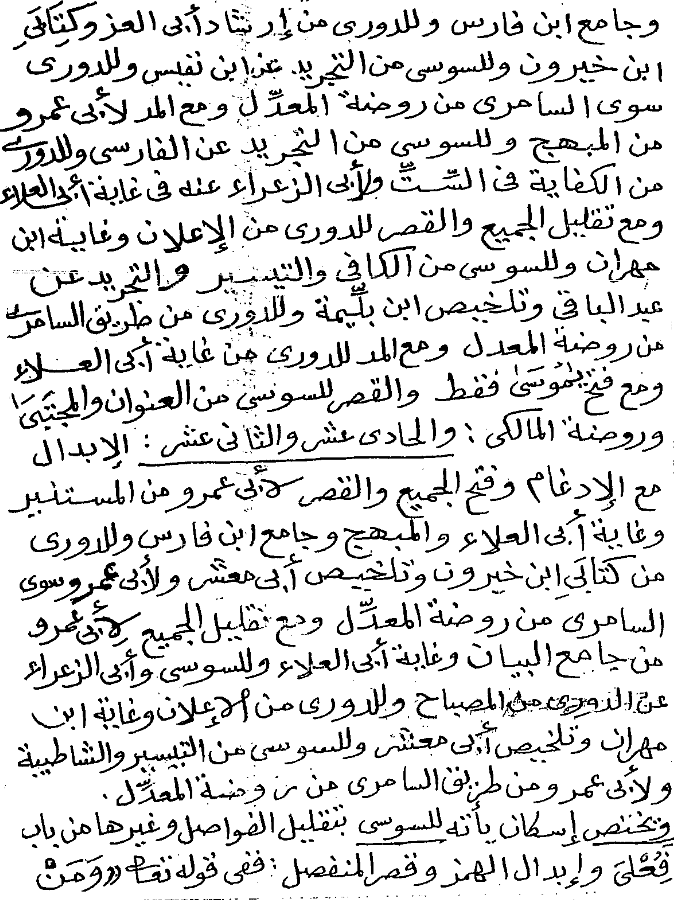 وجامع ابن فارس وللدورى من إرشاد أبى العز وكتابَىِ
ابن خيرون وللسوسى من التجريد عن ابن نفيس وللدورى
سوى السامرى من روضة المعدِّل ومع المد لأبى عمرو
من المبهج وللسوسى من التجريد عن الفارسى وللدورى
من الكفاية فى السِّتِّ ولأبى الزعراء عنه فى غاية أبى العلاء
ومع تقليل الجميع والقصر للدورى من الإعلان وغاية ابن
مهران وللسوسى من الكافى والتيسير والتجريد عن
عبد الباقى وتلخيص ابن بلِّيمة وللدورى من طريق السامرى
من روضة المعدل ومع المد للدورى من غاية أبى العلاء
ومع فتح يٰمُوسَىٰ فقط والقصر للسوسى من العنوان والمجتبىٰ
وروضة المالكى : والحادى عشر والثانى عشر : الإبدال
مع الإدغام وفتح الجميع والقصر لأبى عمرو من المستنير
وغاية أبى العلاء والمبهج وجامع ابن فارس وللدورى
من كتابَىِ ابن خيرون وتلخيص أبى معشر ولأبى عمرو سوى
السامرى من روضة المعدِّل ومع تقليل الجميع لأبى عمرو
من جامع البيان وغاية أبى العلاء وللسوسى وأبى الزعراء
عن الدورى من المصباح وللدورى من الإعلان وغاية ابن
مهران وتلخيص أبى معشر وللسوسى من التيسير والشاطبية
ولأبى عمرو من طريق السامرى من روضة المعدِّل .
ويختص إسكان يأته للسوسى بتقليل الفواصل وغيرها من باب
فُعْلَىٰ وإبدال الهمز وقصر المنفصل : ففى قوله تعالى «وَمَنْ